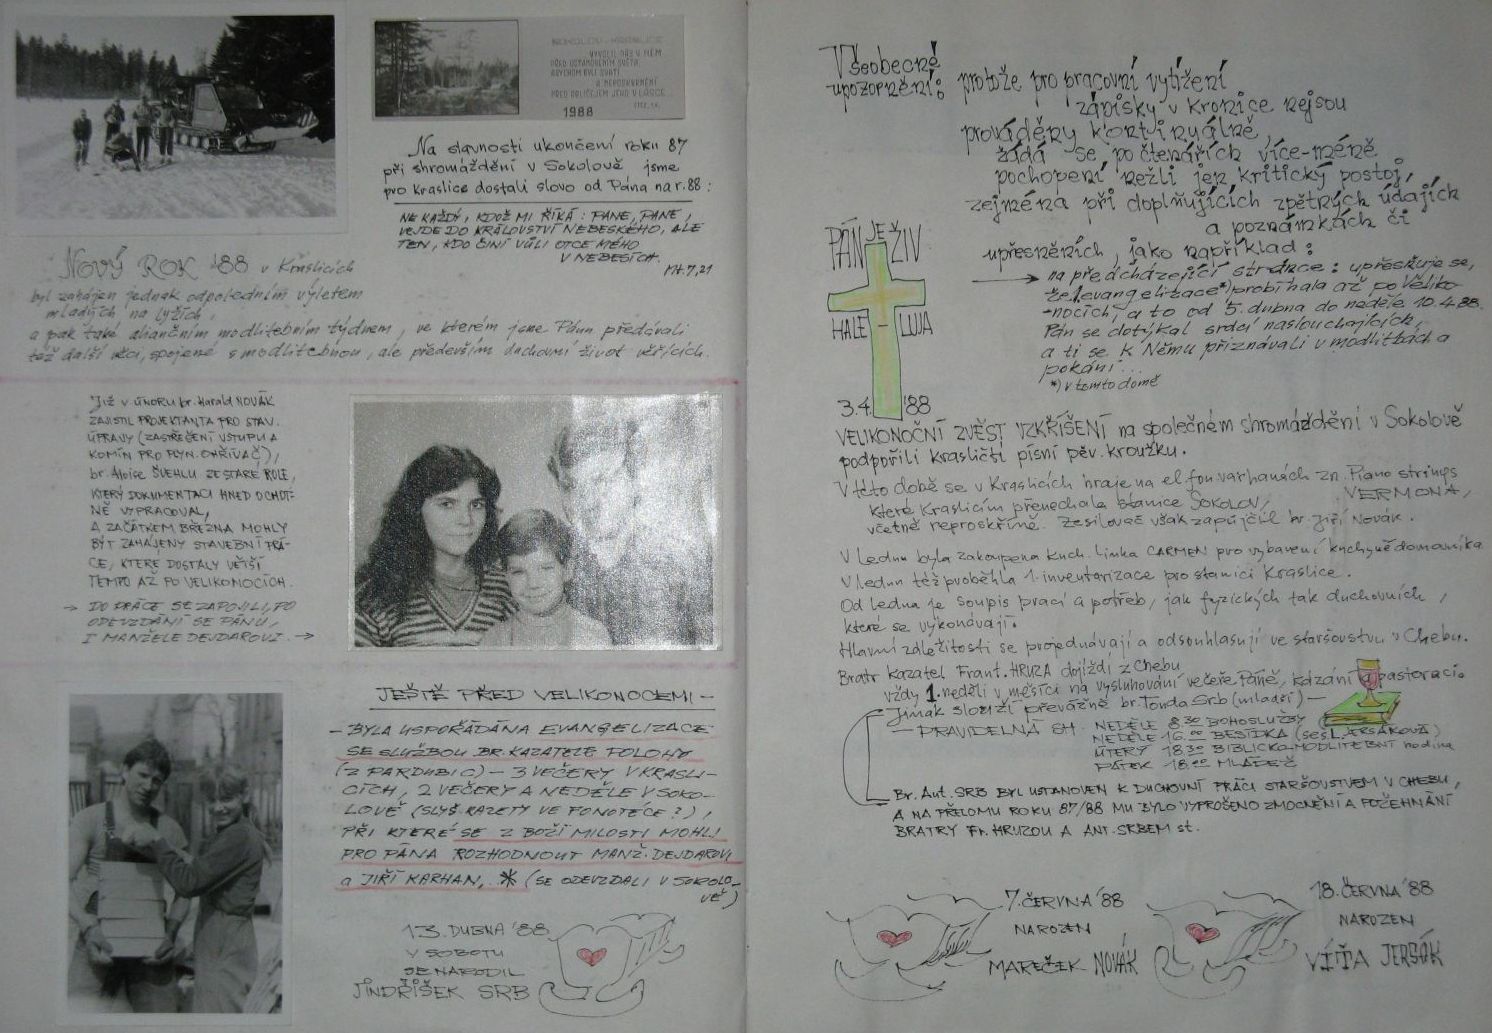 SOKOLOV-KRASLICE
VYVOLIL NÁS V NĚM
PŘED USTANOVENÍM SVĚTA,
ABYCHOM BYLI SVATÍ
A NEPOSKVRNĚNÍ
PŘED OBLIČEJEM JEHO V LÁSCE.
1988
Na slavnosti ukončení roku 87
při shromáždění v Sokolově jsme
pro Kraslice dostali slovo od Pána na r. 88:
NE KAŽDÝ, KDOŽ MI ŘÍKÁ: PANE, PANE,
VEJDE DO KRÁLOVSTVÍ NEBESKÉHO, ALE
TEN, KDO ČINÍ VŮLI OTCE MÉHO
V NEBESÍCH.
Mt. 7,21
NOVÝ ROK '88 v Kraslicích
byl zahájen jednak odpoledním výletem
mladých na lyžích,
a pak také aliančním modlitebním týdnem, ve kterém jsme Pánu předávali
též další věci, spojené s modlitebnou, ale především duchovní život věřících.
Již v únoru br. Harald NOVÁK
ZAJISTIL PROJEKTANTA PRO STAV.
ÚPRAVY (ZASTŘEŠENÍ VSTUPU A
KOMÍN PRO PLYN. OHŘÍVAČ),
br. Aloise ŠVEHLU ZE STARÉ ROLE,
KTERÝ DOKUMENTACI HNED OCHOT-
NĚ VYPRACOVAL,
A ZAČÁTKEM BŘEZNA MOHLY
BÝT ZAHÁJENY STAVEBNÍ PRÁ-
CE, KTERÉ DOSTALY VĚTŠÍ
TEMPO AŽ PO VELIKONOCÍCH.
→ DO PRÁCE SE ZAPOJILI, PO
ODEVZDÁNÍ SE PÁNU,
I MANŽELÉ DEJDAROVI. →
JEŠTĚ PŘED VELIKONOCEMI -
- BYLA USPOŘÁDÁNA EVANGELIZACE
SE SLUŽBOU BR. KAZATELE POLOHY
(Z PARDUBIC) - 3 VEČERY V KRASLI-
CÍCH, 2 VEČERY A NEDĚLE V SOKO-
LOVĚ (SLYŠ KAZETY VE FONOTÉCE?),
PŘI KTERÉ SE Z BOŽÍ MILOSTI MOHLI
PRO PÁNA ROZHODNOUT MANŽ. DEJDAROVI
a JIŘÍ KARHAN, * (SE ODEVZDALI V SOKOLO-
VĚ)
13. DUBNA '88
V SOBOTU
SE NARODIL
JINDŘÍŠEK SRB
Všeobecné
upozornění: protože pro pracovní vytížení
zápisky v kronice nejsou
prováděny kontinuálně,
žádá se po čtenářích více-méně
pochopení nežli jen kritický postoj,
zejména při doplňujících zpětných údajích
a poznámkách či
upřesněních, jako například:
→ na předcházející stránce: upřesňuje se,
že evangelizace *) probíhala až po Veliko-
nocích, a to od 5. dubna do neděle 10.4.88.
Pán se dotýkal srdcí naslouchajících,
a ti se k Němu přiznávali v modlitbách a
pokání...
*) v tomto domě
PÁN JE ŽIV
HALE-LUJA
3.4. '88
VELIKONOČNÍ ZVĚST VZKŘÍŠENÍ na společném shromáždění v Sokolově
podpořili krasličtí písní pěv. kroužku.
V této době se v Kraslicích hraje na el. fon. varhanách zn. Piano strings
VERMONA,
které Kraslicím přenechala stanice Sokolov,
včetně reproskříně. Zesilovač však zapůjčil br. Jiří Novák.
V lednu byla zakoupena kuch. linka CARMEN pro vybavení kuchyně domovníka
V lednu též proběhla 1. inventarizace pro stanici Kraslice.
Od ledna je soupis prací a potřeb, jak fyzických tak duchovních,
které se vykonávají.
Hlavní záležitosti se projednávají a odsouhlasují ve staršovstvu v Chebu.
Bratr kazatel Frant. HRUZA dojíždí z Chebu
vždy 1. neděli v měsíci na vysluhování večeře Páně, kázání a pastoraci.
Jinak slouží převážně br. Tonda Srb (mladší) -
- PRAVIDELNÁ SH. NEDĚLE 8.30 BOHOSLUŽBY
NEDĚLE 16.00 BESÍDKA (ses. L. JERSÁKOVÁ)
ÚTERÝ 18.30 BIBLICKO-MODLITEBNÍ hodina
PÁTEK 18.00 MLÁDEŽ
Br. Ant. SRB BYL USTANOVEN K DUCHOVNÍ PRÁCI STARŠOVSTVEM V CHEBU,
A NA PŘELOMU ROKU 87/88 MU BYLO VYPROŠENO ZMOCNĚNÍ A POŽEHNÁNÍ
BRATRY Fr. HRUZOU A ANT. SRBEM st.
7. ČERVNA '88
NAROZEN
MAREČEK NOVÁK
18. ČERVNA '88
NAROZEN
VÍŤA JERSÁK